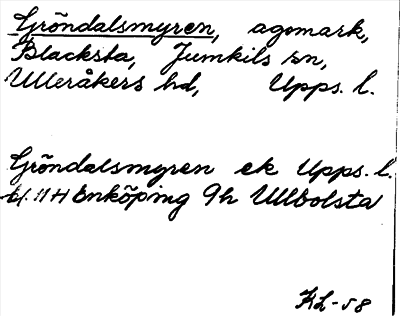 Gröndalsmyren, agomark,
Blacksta, Jumkils sn,
Ulleråkers hd, Upps. l.
Gröndalsmyren ek Upps. l.
bl. 11 H Enköping 9h Ullbolsta
KL-58